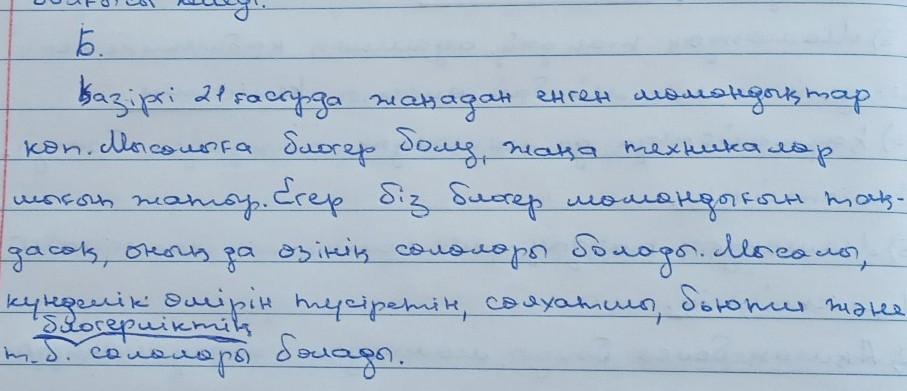 Б.
Қазіргі 21 ғасырда жаңадан енген мамандықтар
көп. Мысалыға блогер болу, жаңа техникалар
шығып жатыр. Егер біз блогер мамандығын таң-
дасақ, оның да өзінің салалары болады. Мысалы,
күнделік өмірін түсіретін, саяхатшы, бьюти және
блогерліктің
т.б. салалары болады.